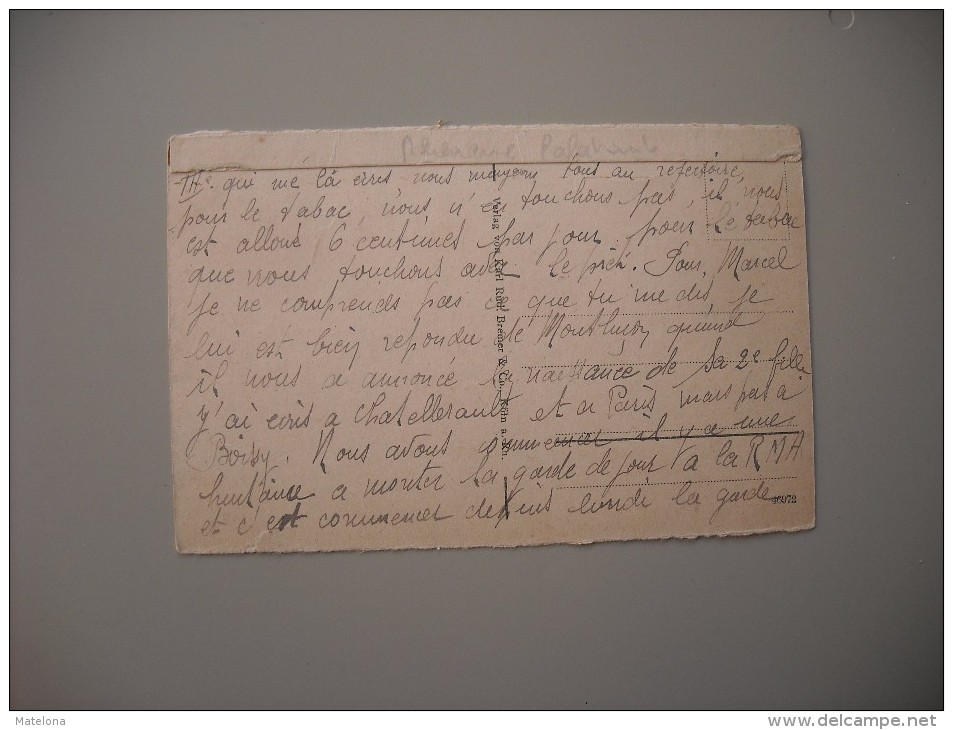 Rhenanie Palatinat
qui me l'a écris, nous mangeons tous au refectoire,
pour le tabac, nous n'en touchons pas, il nous
est alloué 6 centimes par jour, pour le tabac
que nous touchons avec le prêt. Pour Marcel
je ne comprends pas ce que tu me dis, je
lui est bien repondu de Montluçon quand
il nous a annoncé la naissance de sa 2e fille
j'ai ecris a Chatellerault et a Paris mais pas a
Boissy. Nous avons commencer il y a une
huitaine a monter la garde de jour a la RMA
et c'est commencer depuis lundi la garde
Verlag von Karl Rud. Bremer & Co., Köln a. Rh.
46072
Matelona
www.delcampe.net